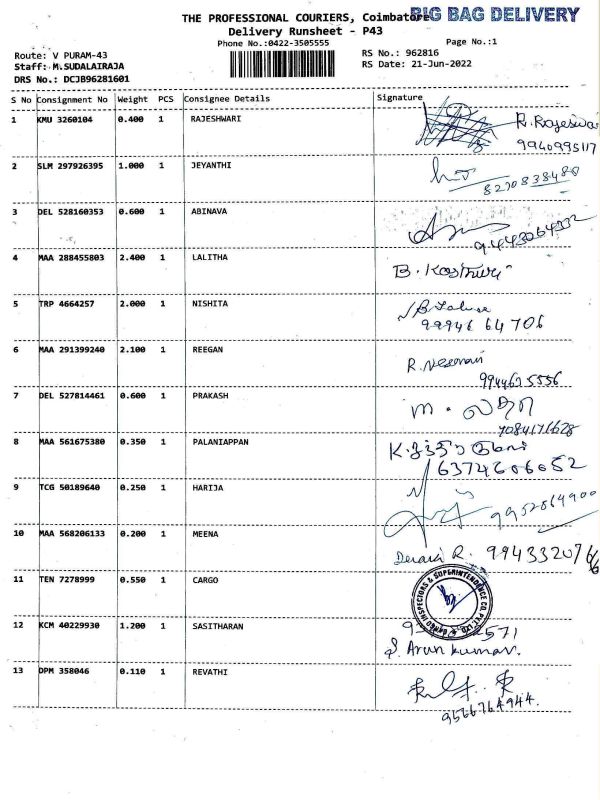 THE PROFESSIONAL COURIERS, Coimbatore
BIG BAG DELIVERY
Delivery Runsheet - P43
Phone No.:0422-3505555
Page No.:1
Route: V PURAM-43
RS No.: 962816
Staff: M.SUDALAIRAJA
RS Date: 21-Jun-2022
DRS No.: DCJB96281601
S No Consignment No Weight PCS Consignee Details Signature
1 KMU 3260104 0.400 1 RAJESHWARI
R. Rajeswari
9940995117
2 SLM 297926395 1.000 1 JEYANTHI
8270838480
3 DEL 528160353 0.600 1 ABINAVA
9443064332
4 MAA 288455803 2.400 1 LALITHA
B. Kasthuri
5 TRP 4664257 2.000 1 NISHITA
99946 64706
6 MAA 291399240 2.100 1 REEGAN
9944625556
7 DEL 527814461 0.600 1 PRAKASH
7084171628
8 MAA 561675380 0.350 1 PALANIAPPAN
6374606052
9 TCG 50189640 0.250 1 HARIJA
9952864900
10 MAA 568206133 0.200 1 MEENA
R. 9943320766
11 TEN 7278999 0.550 1 CARGO
CARGO INSPECTORS & SUPERINTENDENCE CO. PVT. LTD.
12 KCM 40229930 1.200 1 SASITHARAN
2571
S. Arun kumar.
13 DPM 358046 0.110 1 REVATHI
9566764944.